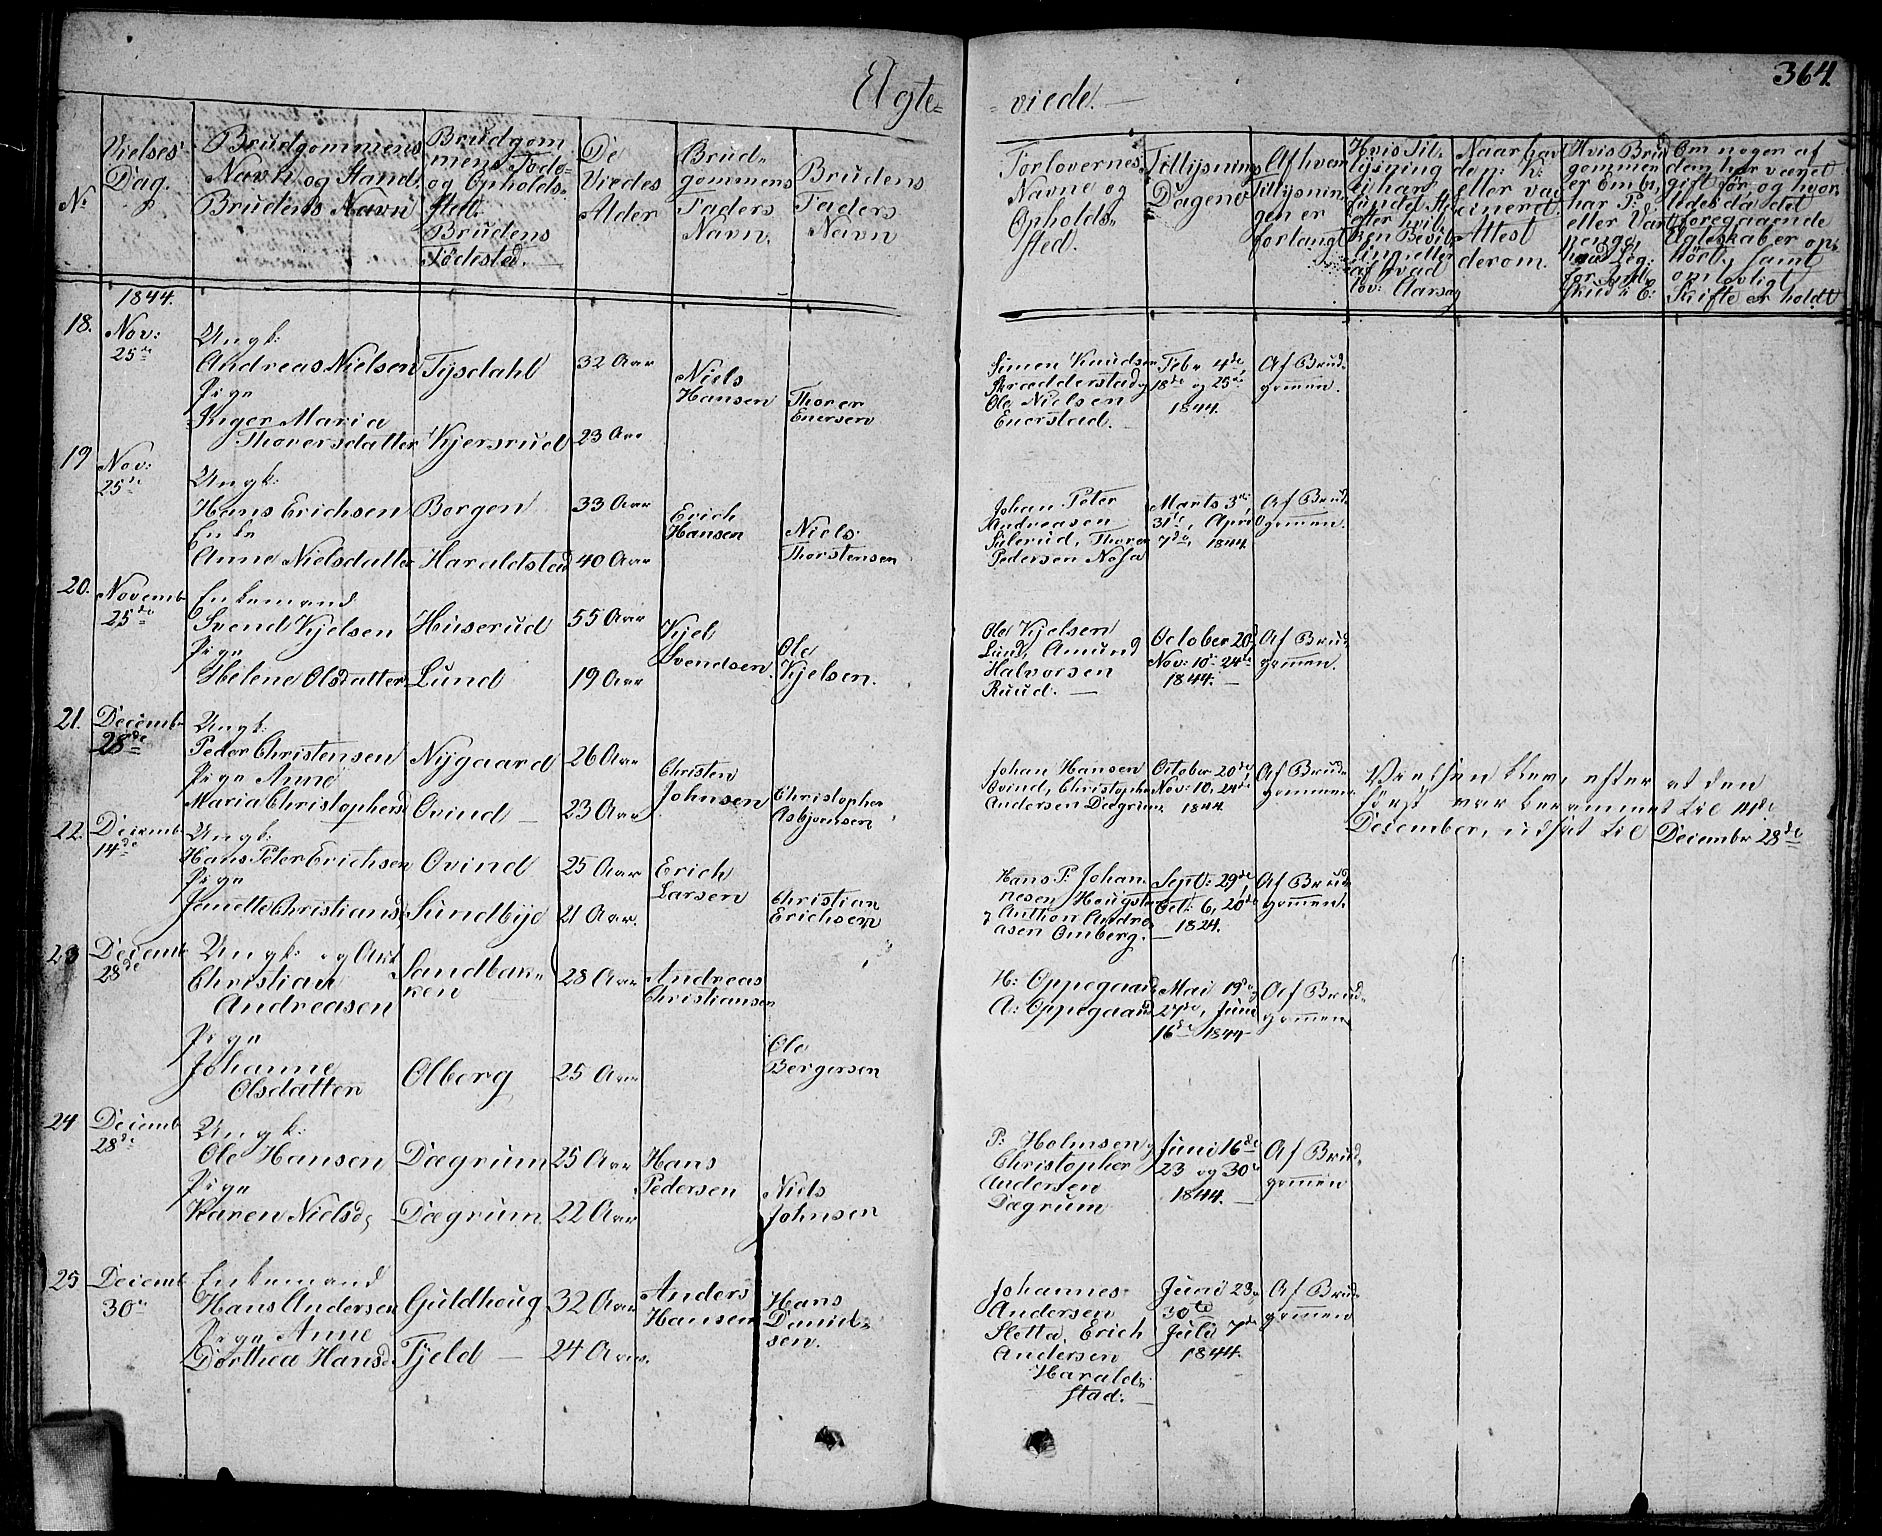 364.
Ægte=
=viede.
N:
Vielses
Dag.
Brudgommens
Navn og Stand.
Brudens Navn
Brudgom
mens Føde-
og Opholds-
sted.
Brudens
Fødested.
De
Viedes
Alder
Brud-
gommens
Faders
Navn.
Brudens
Faders
Navn
Forlovernes
Navne og
Opholds-
sted.
Tillysnings
Dagene
Af hvem
Tillysnin
gen er
forlangt
Hvis Til-
lysning
ei har
fundet St:
efter hvil-
ken Bevil-
ling eller
af hvad
lov: Aarsag
Naar hav
de n: k:
eller vac
cineret.
Attest
derom.
Hvis Brud
gommen
er Emb:
har P:
eller Vart
penge,
Om nogen af
dem har været
gift før, og hvor
ledes da det
foregaaende
Egteskab er op-
hørt, samt
om lovligt
Skifte er holdt
1844.
18.
Nov:
25de
Ungk:
Andreas Nielsen
Pige
Inger Maria
Thorersdatter
Tysdahl
Kjersrud
32 Aar
23 Aar
Niels
Hansen
Thorer
Enersen
Simen Knudsen
Skrædderstad og
Ole Nielsen
Enerstad.
Febr 4de,
18de og 25de
1844.
Af Brud-
gommen.
19
Nov:
25de
Ungk:
Hans Erichsen
Enke
Anne Nielsdatter
Borgen
Haraldstad
33 Aar
40 Aar
Erich
Hansen
Niels
Thorstensen
Johan Peter
Andreasen
Sulerud, Thorer
Pedersen Nosa
Marts 3de,
31te, April
7de, 1844.
Af Brud-
gommen.
20.
Novemb
25de
Enkemand
Svend Kjelsen
Pige
Helene Olsdatter
Huserud
Lund
55 Aar
19 Aar
Kjel
Svendsen
Ole
Kjelsen.
Ole Kjelsen
Lund, Amund
Halvorsen
Ruud. —
October 20,
Nov: 10de 24de
1844. —
Af Brud-
gommen.
21.
Decemb
28de
Ungk:
Peder Christensen
Pige Anne
Maria Christophersd
Nygaard
Ovind —
26 Aar
23 Aar
Christen
Johnsen
Christopher
Asbjørnsen
Johan Hansen
Ovind, Christopher
Andersen Dægrum
October 20de,
Nov: 10, 24de
1844
Af Brud-
gommen.
Vielsen blev, efter at den
først var berammet til 14de
December, udsat til Decembr 28de
22.
Decemb
14de
Ungk:
Hans Peter Erichsen
Pige
Jenette Christiansd
Ovind
Sundbye
25 Aar
21 Aar.
Erich
Larsen
Christian
Erichsen
Hans P: Johan-
nesen Hougst
og Anthon Andre-
asen Omberg. —
Sept: 29de,
Oct: 6, 20de
1824.
Af Brud-
gommen.
23
Decemb
28de
Ungk: og
Christian
Andreasen
Pige
Johanne
Olsdatter
Sandbak-
ken
Olberg
28 Aar
25 Aar
Andreas
Christiansen
Ole
Bergersen
H: Oppegaard
A: Oppegaard
Mai 19de og
27de, Juni
16de 1844
Af Brud-
gommen
24
Decemb
28de
Ungk:
Ole Hansen
Pige
Karen Nielsd
Dægrum
Dægrum
25 Aar
22 Aar
Hans
Pedersen
Niels
Johnsen
P: Holmsen og
Christopher
Andersen
Dægrum
Juni 16de
23 og 30te
1844. —
Af Brud-
gommen
25
Decemb
30te
Enkemand
Hans Andersen
Pige Anne
Dorthea Hansd
Guldhoug
Fjeld —
32 Aar
24 Aar.
Anders
Hansen
Hans
Daniel-
sen.
Johannes
Andersen
Sletta, Erich
Andersen
Harald-
stad. —
Juni 23,
30te
Juli 7de
1844.
Af Brud-
gommen